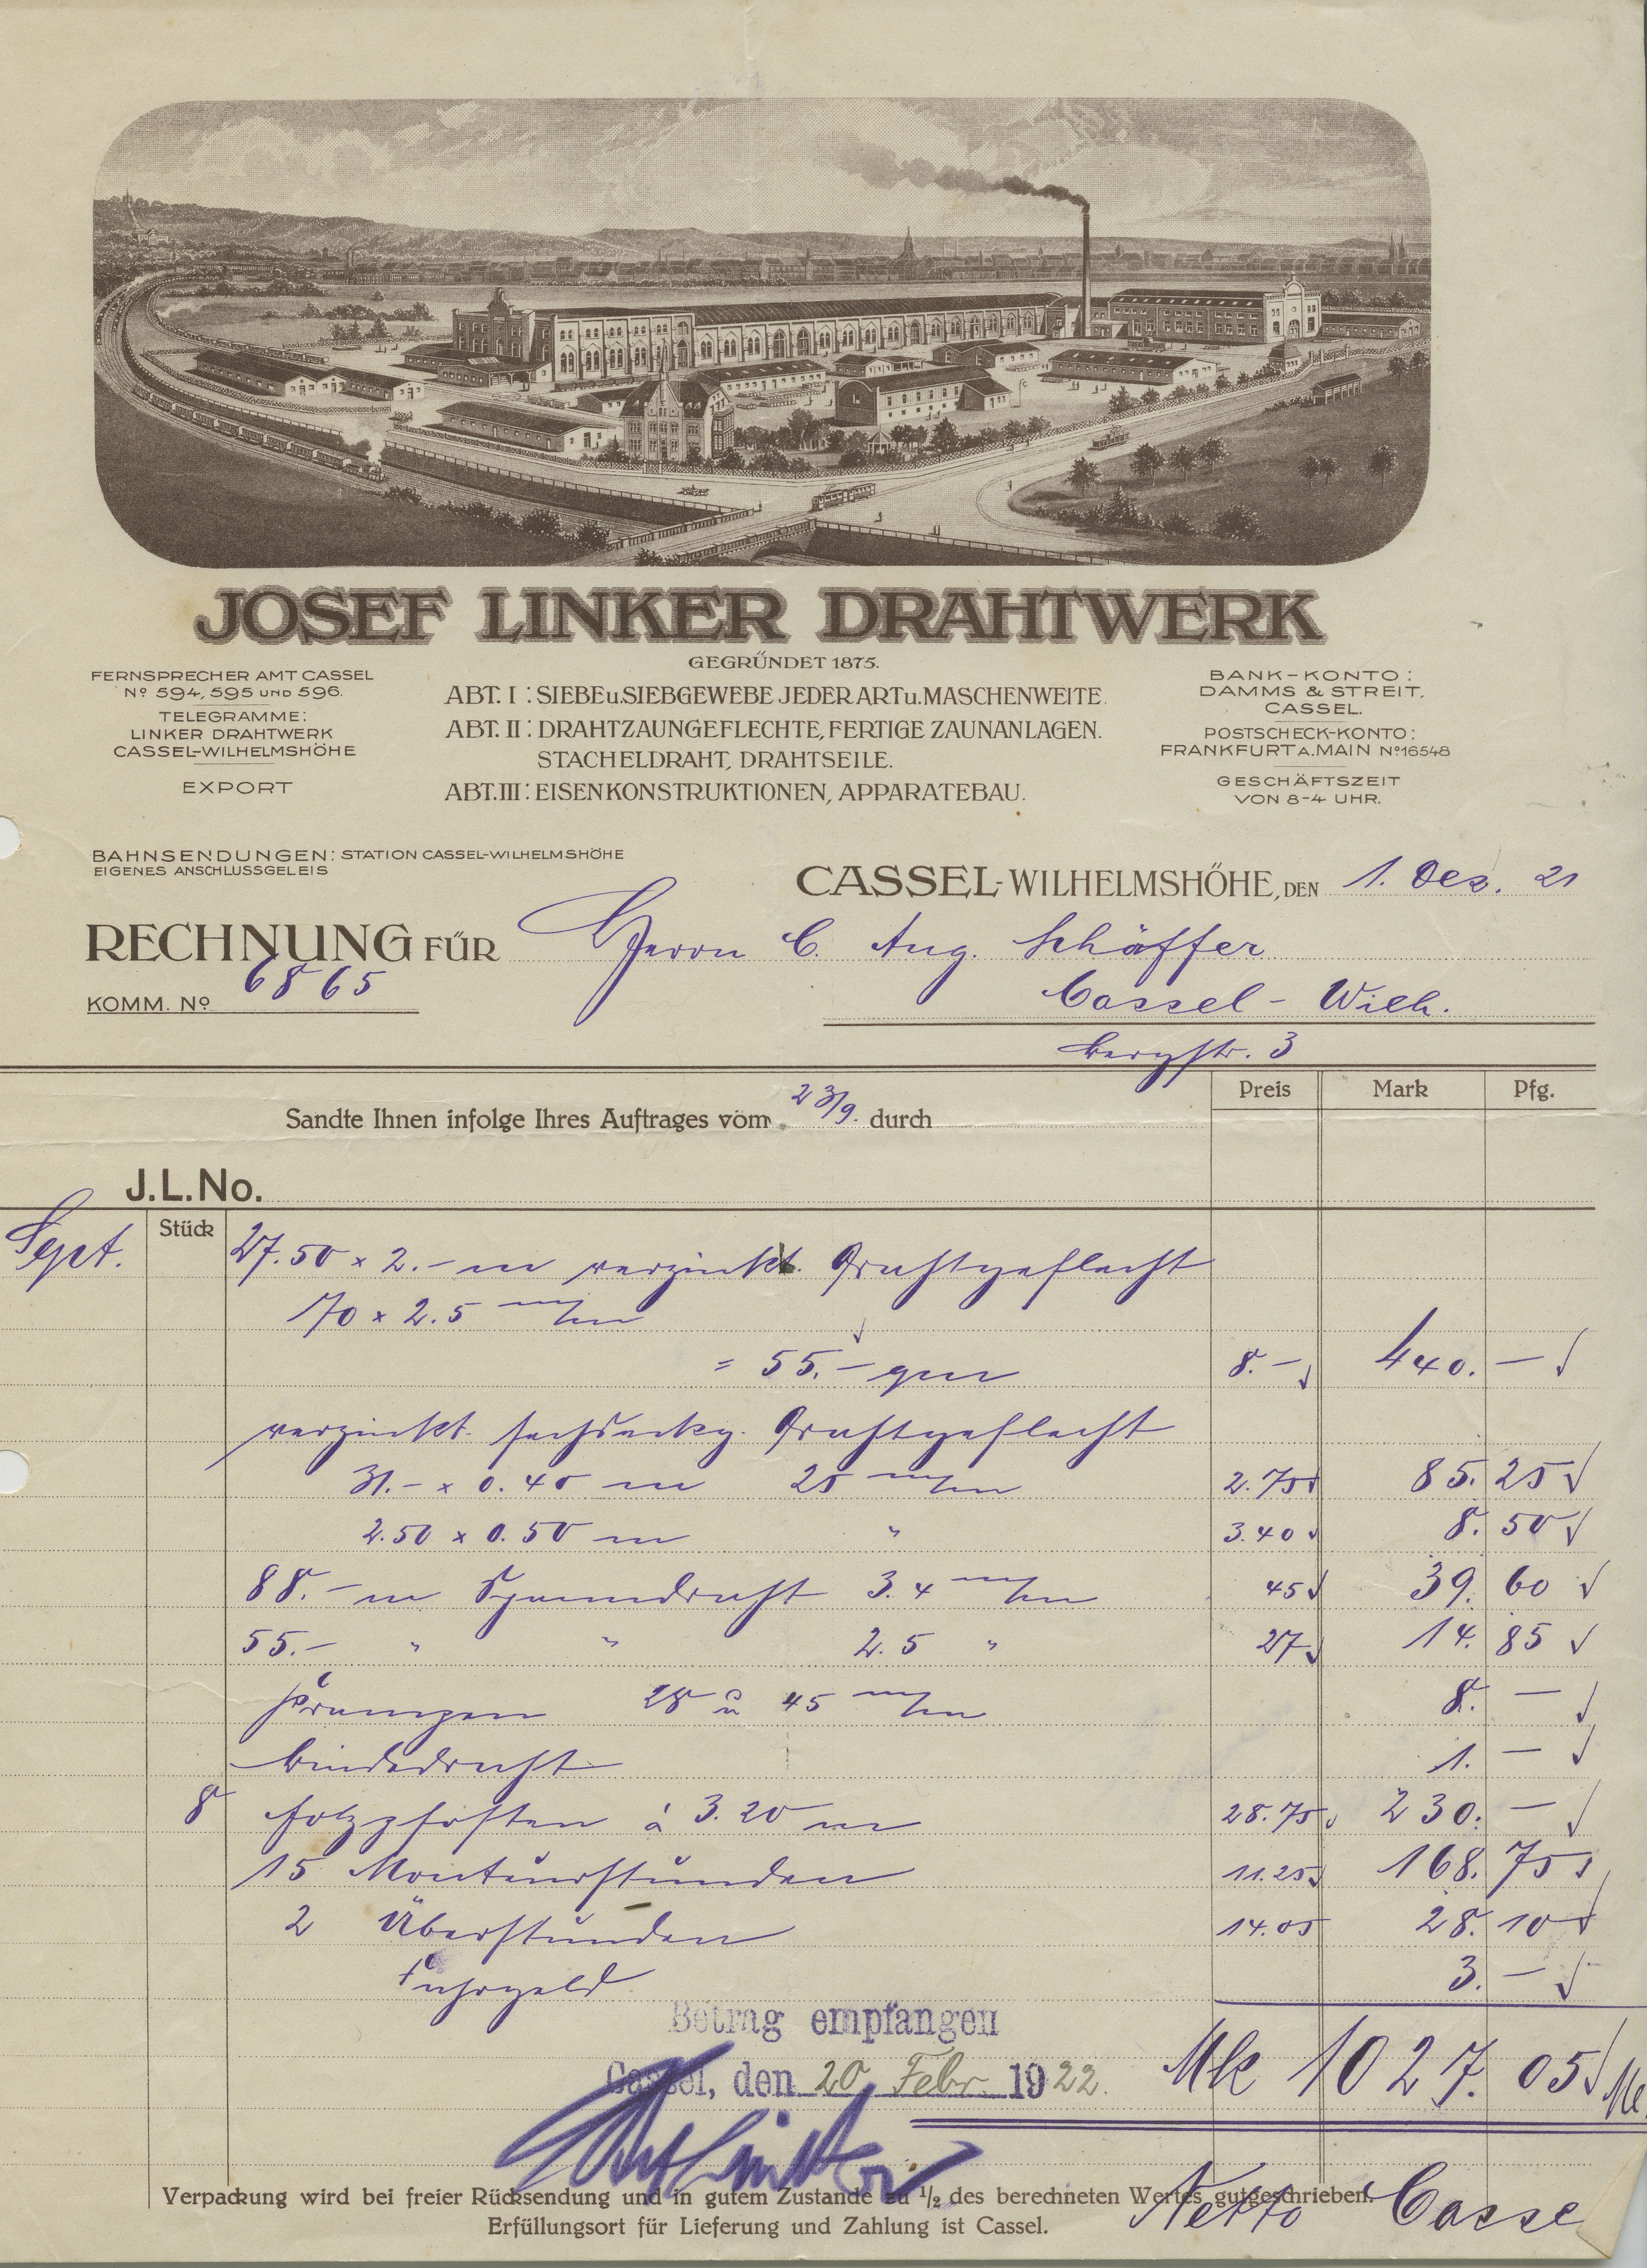 JOSEF LINKER DRAHTWERK
GEGRÜNDET 1875.
FERNSPRECHER AMT CASSEL
No 594, 595 UND 596.
TELEGRAMME:
LINKER DRAHTWERK
CASSEL-WILHELMSHÖHE
EXPORT
ABT. I : SIEBE u. SIEBGEWEBE JEDER ART u. MASCHENWEITE.
ABT. II : DRAHTZAUNGEFLECHTE, FERTIGE ZAUNANLAGEN.
STACHELDRAHT, DRAHTSEILE.
ABT. III : EISENKONSTRUKTIONEN, APPARATEBAU.
BANK-KONTO:
DAMMS & STREIT,
CASSEL.
POSTSCHECK-KONTO:
FRANKFURT A. MAIN No 16548
GESCHÄFTSZEIT
VON 8-4 UHR.
BAHNSENDUNGEN: STATION CASSEL-WILHELMSHÖHE
EIGENES ANSCHLUSSGELEIS
CASSEL-WILHELMSHÖHE, DEN 1. Dez. 21
RECHNUNG FÜR Herrn C. Aug. Schäffer
KOMM. No 6865
Cassel - Wilh.
Bergstr. 3
Preis Mark Pfg.
Sandte Ihnen infolge Ihres Auftrages vom 23/9. durch
J.L.No.
Stück
Sept. 27.50 x 2.- m verzinkt. Drahtgeflecht
70 x 2.5 m/m
= 55.- qm 8.- 440. -
verzinkt. sechseckg. Drahtgeflecht
31.- x 0.40 m 25 m/m 2.75 85. 25
2.50 x 0.50 m " 3.40 8. 50
88.- m Spanndraht 3.4 m/m 45 39. 60
55.- " " 2.5 " 27 14. 85
Krampen 28 u 45 m/m 8. -
Bindedraht 1. -
8 Holzpfosten à 3.20 m 28.75 230. -
15 Monteurstunden 11.25 168. 75
2 Überstunden 14.05 28. 10
Fuhrgeld 3. -
Betrag empfangen
Cassel, den 20 Febr. 1922.
Mk 1027. 05
Verpackung wird bei freier Rücksendung und in gutem Zustande zu 1/2 des berechneten Wertes gutgeschrieben.
Netto Casse
Erfüllungsort für Lieferung und Zahlung ist Cassel.